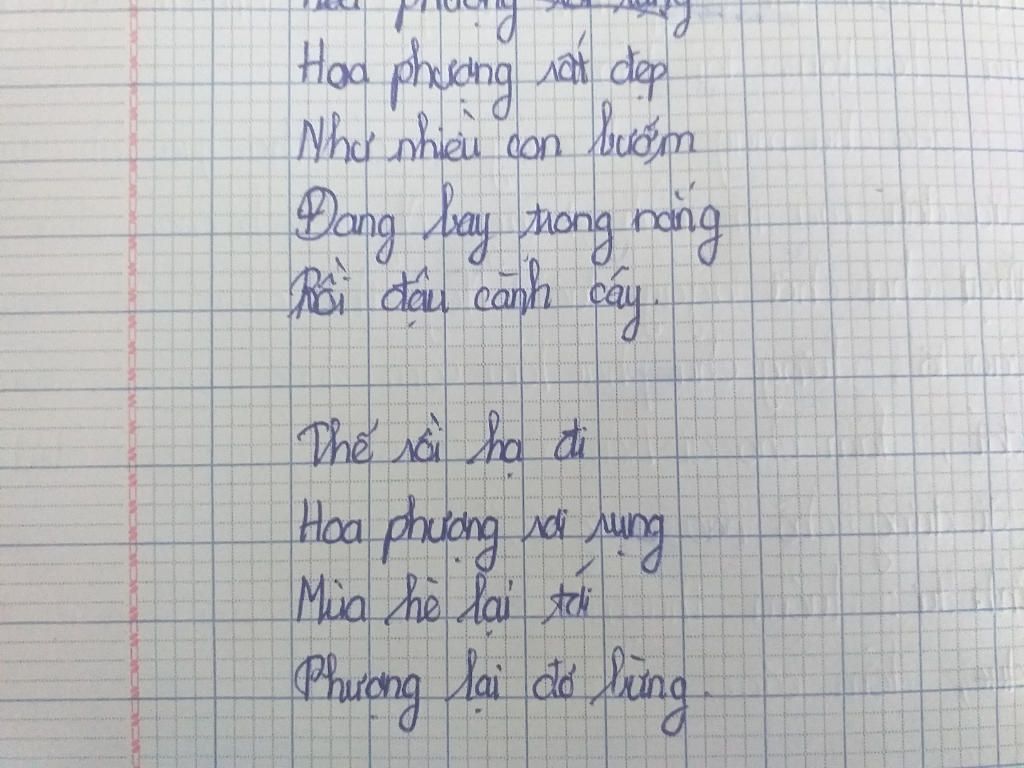 Hoa phượng
Hoa phượng rất đẹp
Như nhiều con bướm
Đang bay trong nắng
Rồi đậu cành cây.
Thế rồi hạ đi
Hoa phượng rơi rụng
Mùa hè lại tới
Phượng lại đỏ bừng.